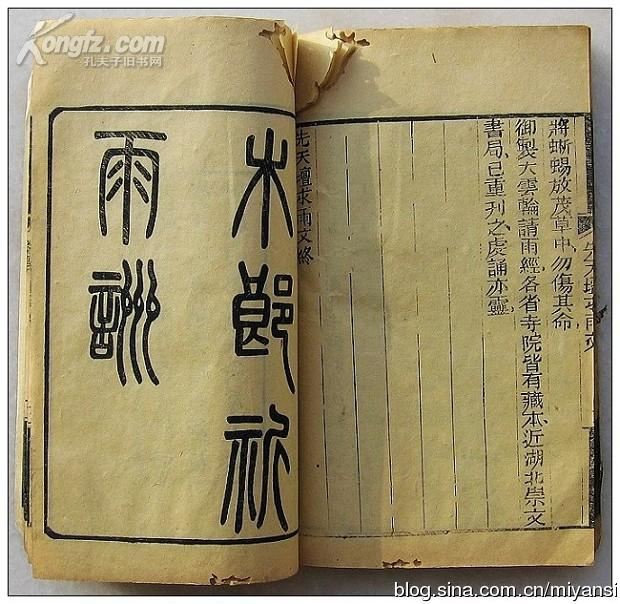 Kongfz.com
孔夫子旧书网
將蜥蜴放茂草中勿傷其命
御製大雲輪請雨經各省寺院皆有藏本近湖北崇文
書局已重刊之處誦亦靈
先天壇求雨文終
木郎祈
雨詶
blog.sina.com.cn/miyansi